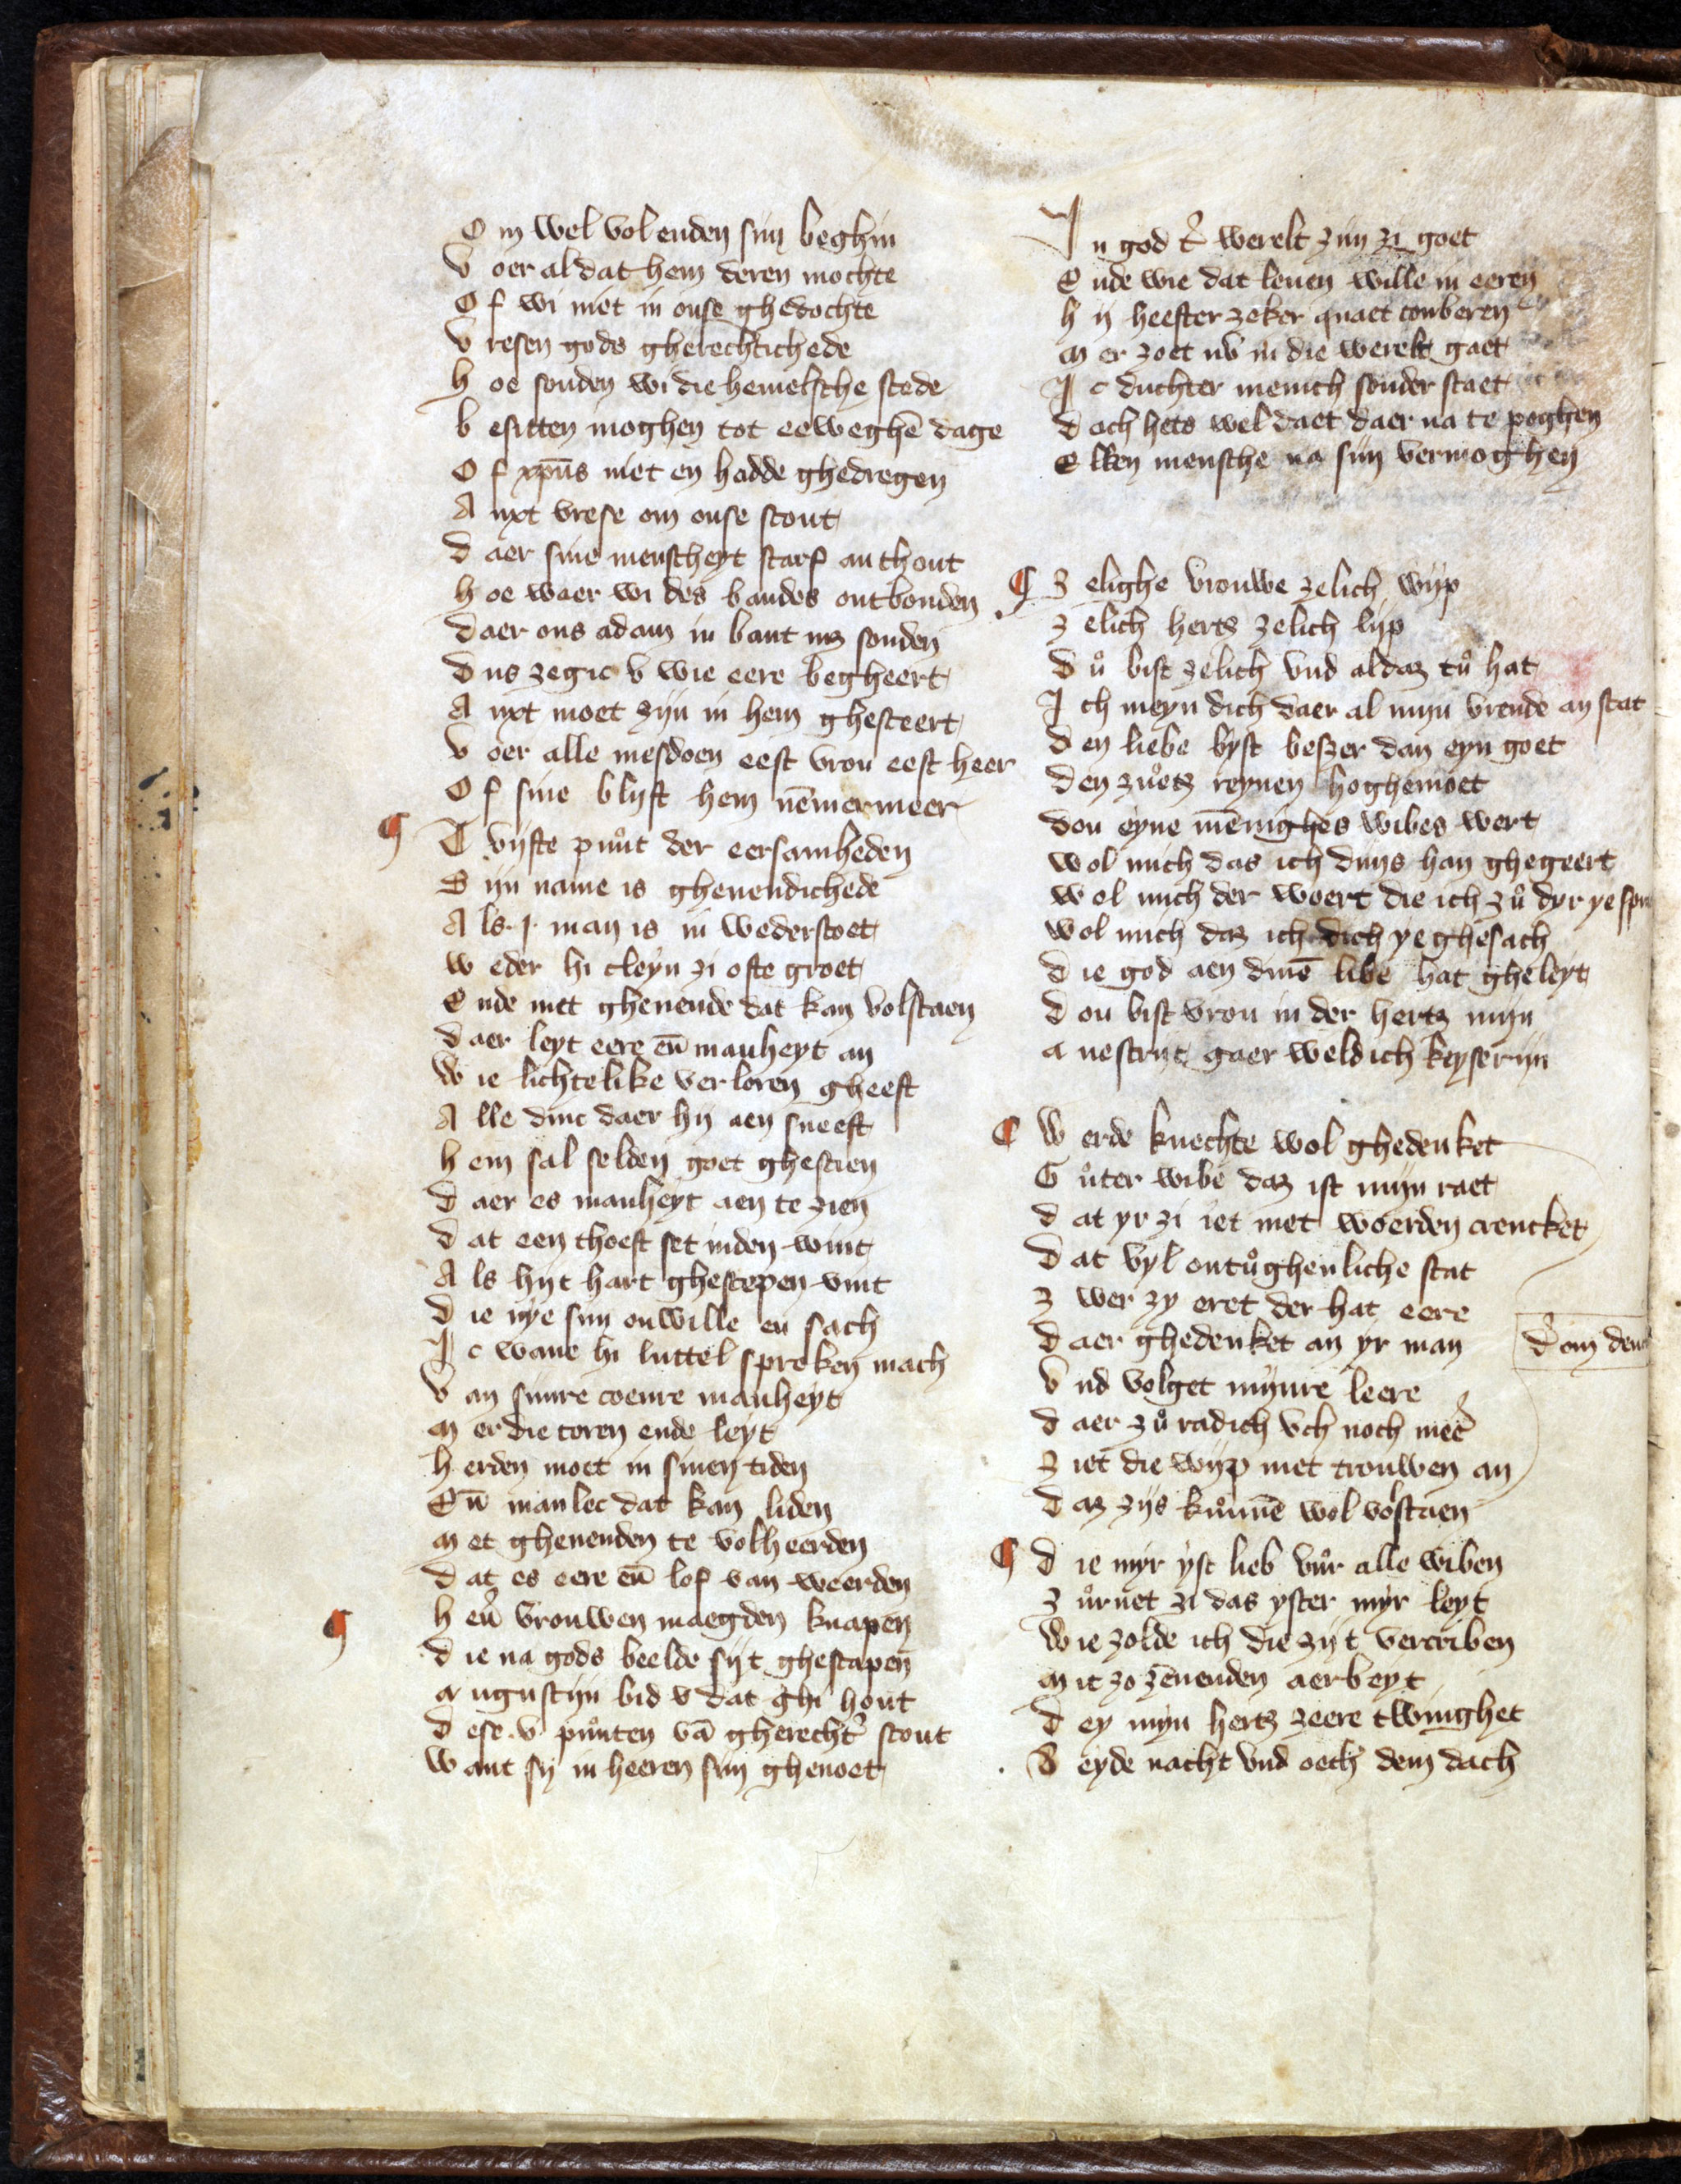 Om wel vol enden sijn beghin
Voer al dat hem deren mochte
Of wi niet in onse ghedochte
Vresen gods gherechtichede
hoe souden wi die hemelsche stede
besitten moghen tot eeweghē dage
Of xpūs niet en hadde ghedregen
Anxt vrese om onse scout
daer sine menscheyt starf an thout
hoe waer wi des bandes ontbonden
daer ons adam in bant mz sonden
dus zegic v wie eere begheert
Anxt moet zijn in hem ghesteert
Voer alle mesdoen eest vrou eest heer
Of sine blijft hem nēmermeer
¶ T vijfte pūnt der eersamheden
Sijn name is ghenendichede
Als .i. man is in wederstoet
weder hi cleyn zi ofte groet
Ende met ghenende dat kan volstaen
daer leyt eere eñ manheyt an
Wie lichtelike verloren gheeft
Alle dinc daer hij aen sneeft
hem sal selden goet ghescien
daer es manheyt aen te zien
dat een thoeft set inden wint
Als hijt hart ghescepen vint
die nye sijn onwille en sach
Ic wane hi luttel spreken mach
Van sijnre coenre manheyt
mer die toren ende leyt
herden moet in sinen tiden
Eñ manlec dat kan liden
met ghenenden te volheerden
dat es eere eñ lof van weerden
¶ heũ vrouwen maegden knapen
die na gods beelde sijt ghescapen
augustijn bid v dat ghi hout
dese .v. půnten vā gherechtˀ scout
want sij in heeren sijn ghenoet
In god tˀ werelt zijn zi goet
Ende wie dat leuen wille in eeren
hij heefter zeker quaet tonberen
mer zoet nv in die werelt gaet
Ic duchter menich sonder staet
doch hets wel daet daer na te poghen
Elken mensche na sijn vermoghen
¶ Zelighe vrouwe zelich wijp
zelich herts zelich lijp
dů bist zelich vnd al daz tů hat
Ich meyn dich daer al mijn vrende an stat
den liebe byst beszer dan eyn goet
den zůetz reynen hoghemoet
dou eyne mēnighes wibes wert
wol mich das ich dijns han ghegeert
wol mich der woert die ich zů dyr ye
wol mich daz ich dich ye ghesach
die god aen dinē libe hat gheleyt
dou bist vrou in der hertz mijn
anestrijt gaer weldich keyserijn
¶ Werde knechte wol ghedenket
Gůter wibe daz ist mijn raet
dat yr zi iet met woerden crencket
dat vyl ontůghenliche stat
zwer zy eret der hat eere
daer ghedenket an yr man
Vnd volget mijnre leere
daer zů radich vch noch meeˀ
ziet die wijp met trouwen an
daz zijs kůnnē wol vostaen
¶ die myr yst lieb vůr alle wiben
zůrnet zi das yster myr leyt
Wie zolde ich die zijt vertriben
mit zo zēnenden aerbeyt
dey mijn hertz zeere twinghet
Beyde nacht vnd oech dem dach